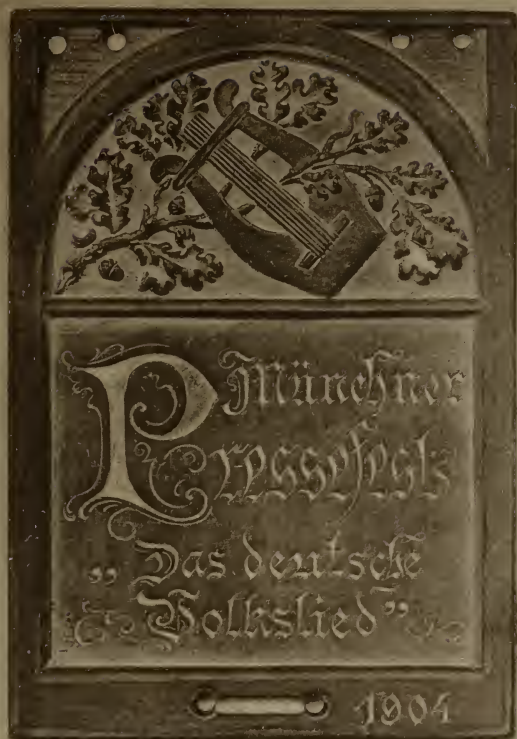 Münchner
Pressefest
„Das deutsche
Volkslied”
1904